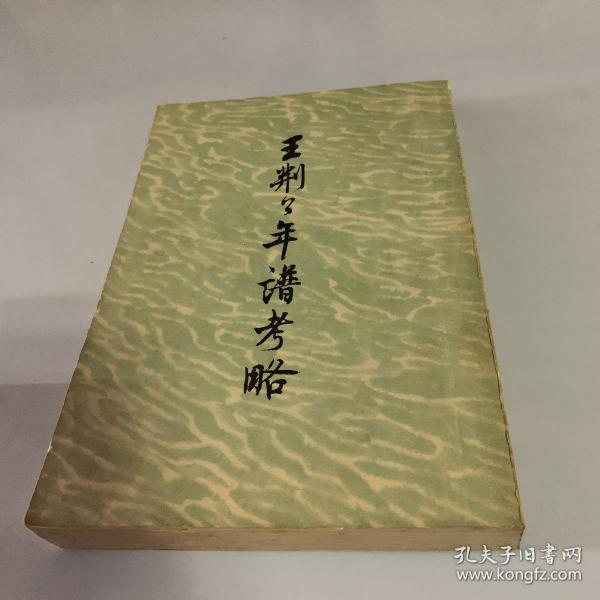 王荆公年谱考略
孔夫子旧书网
www.kongfz.com